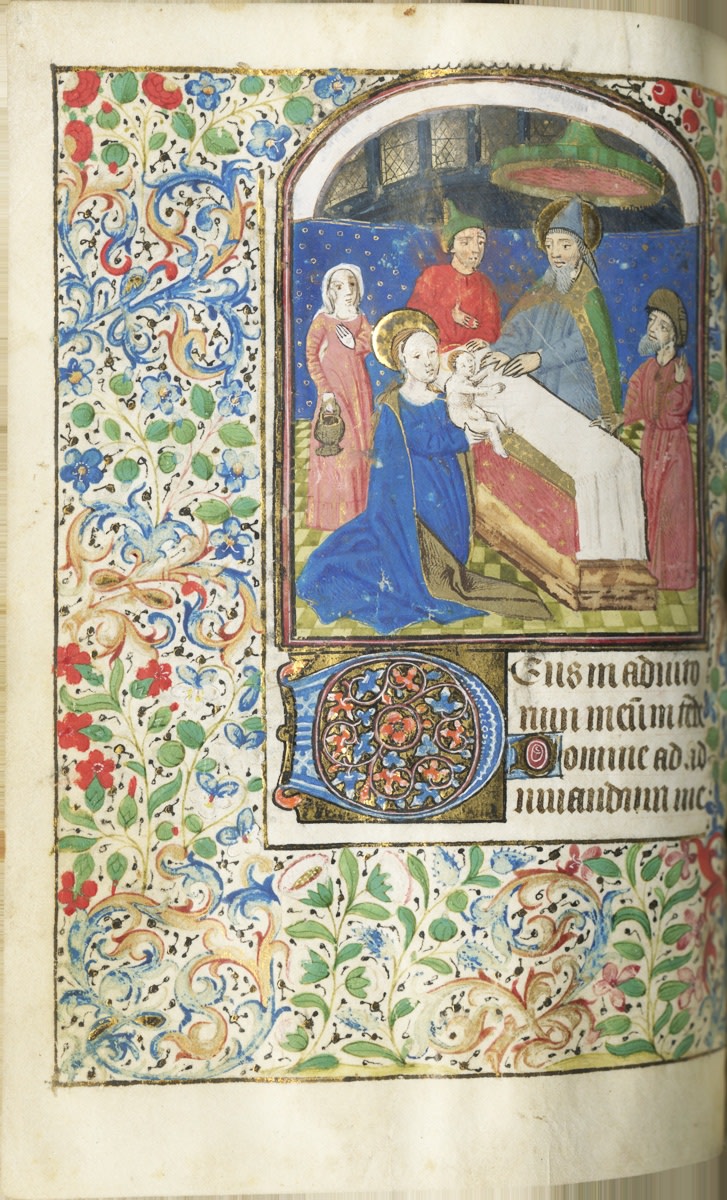 Deus in adiuto
rium meū in tēde
Domine ad ad
iuuandum me